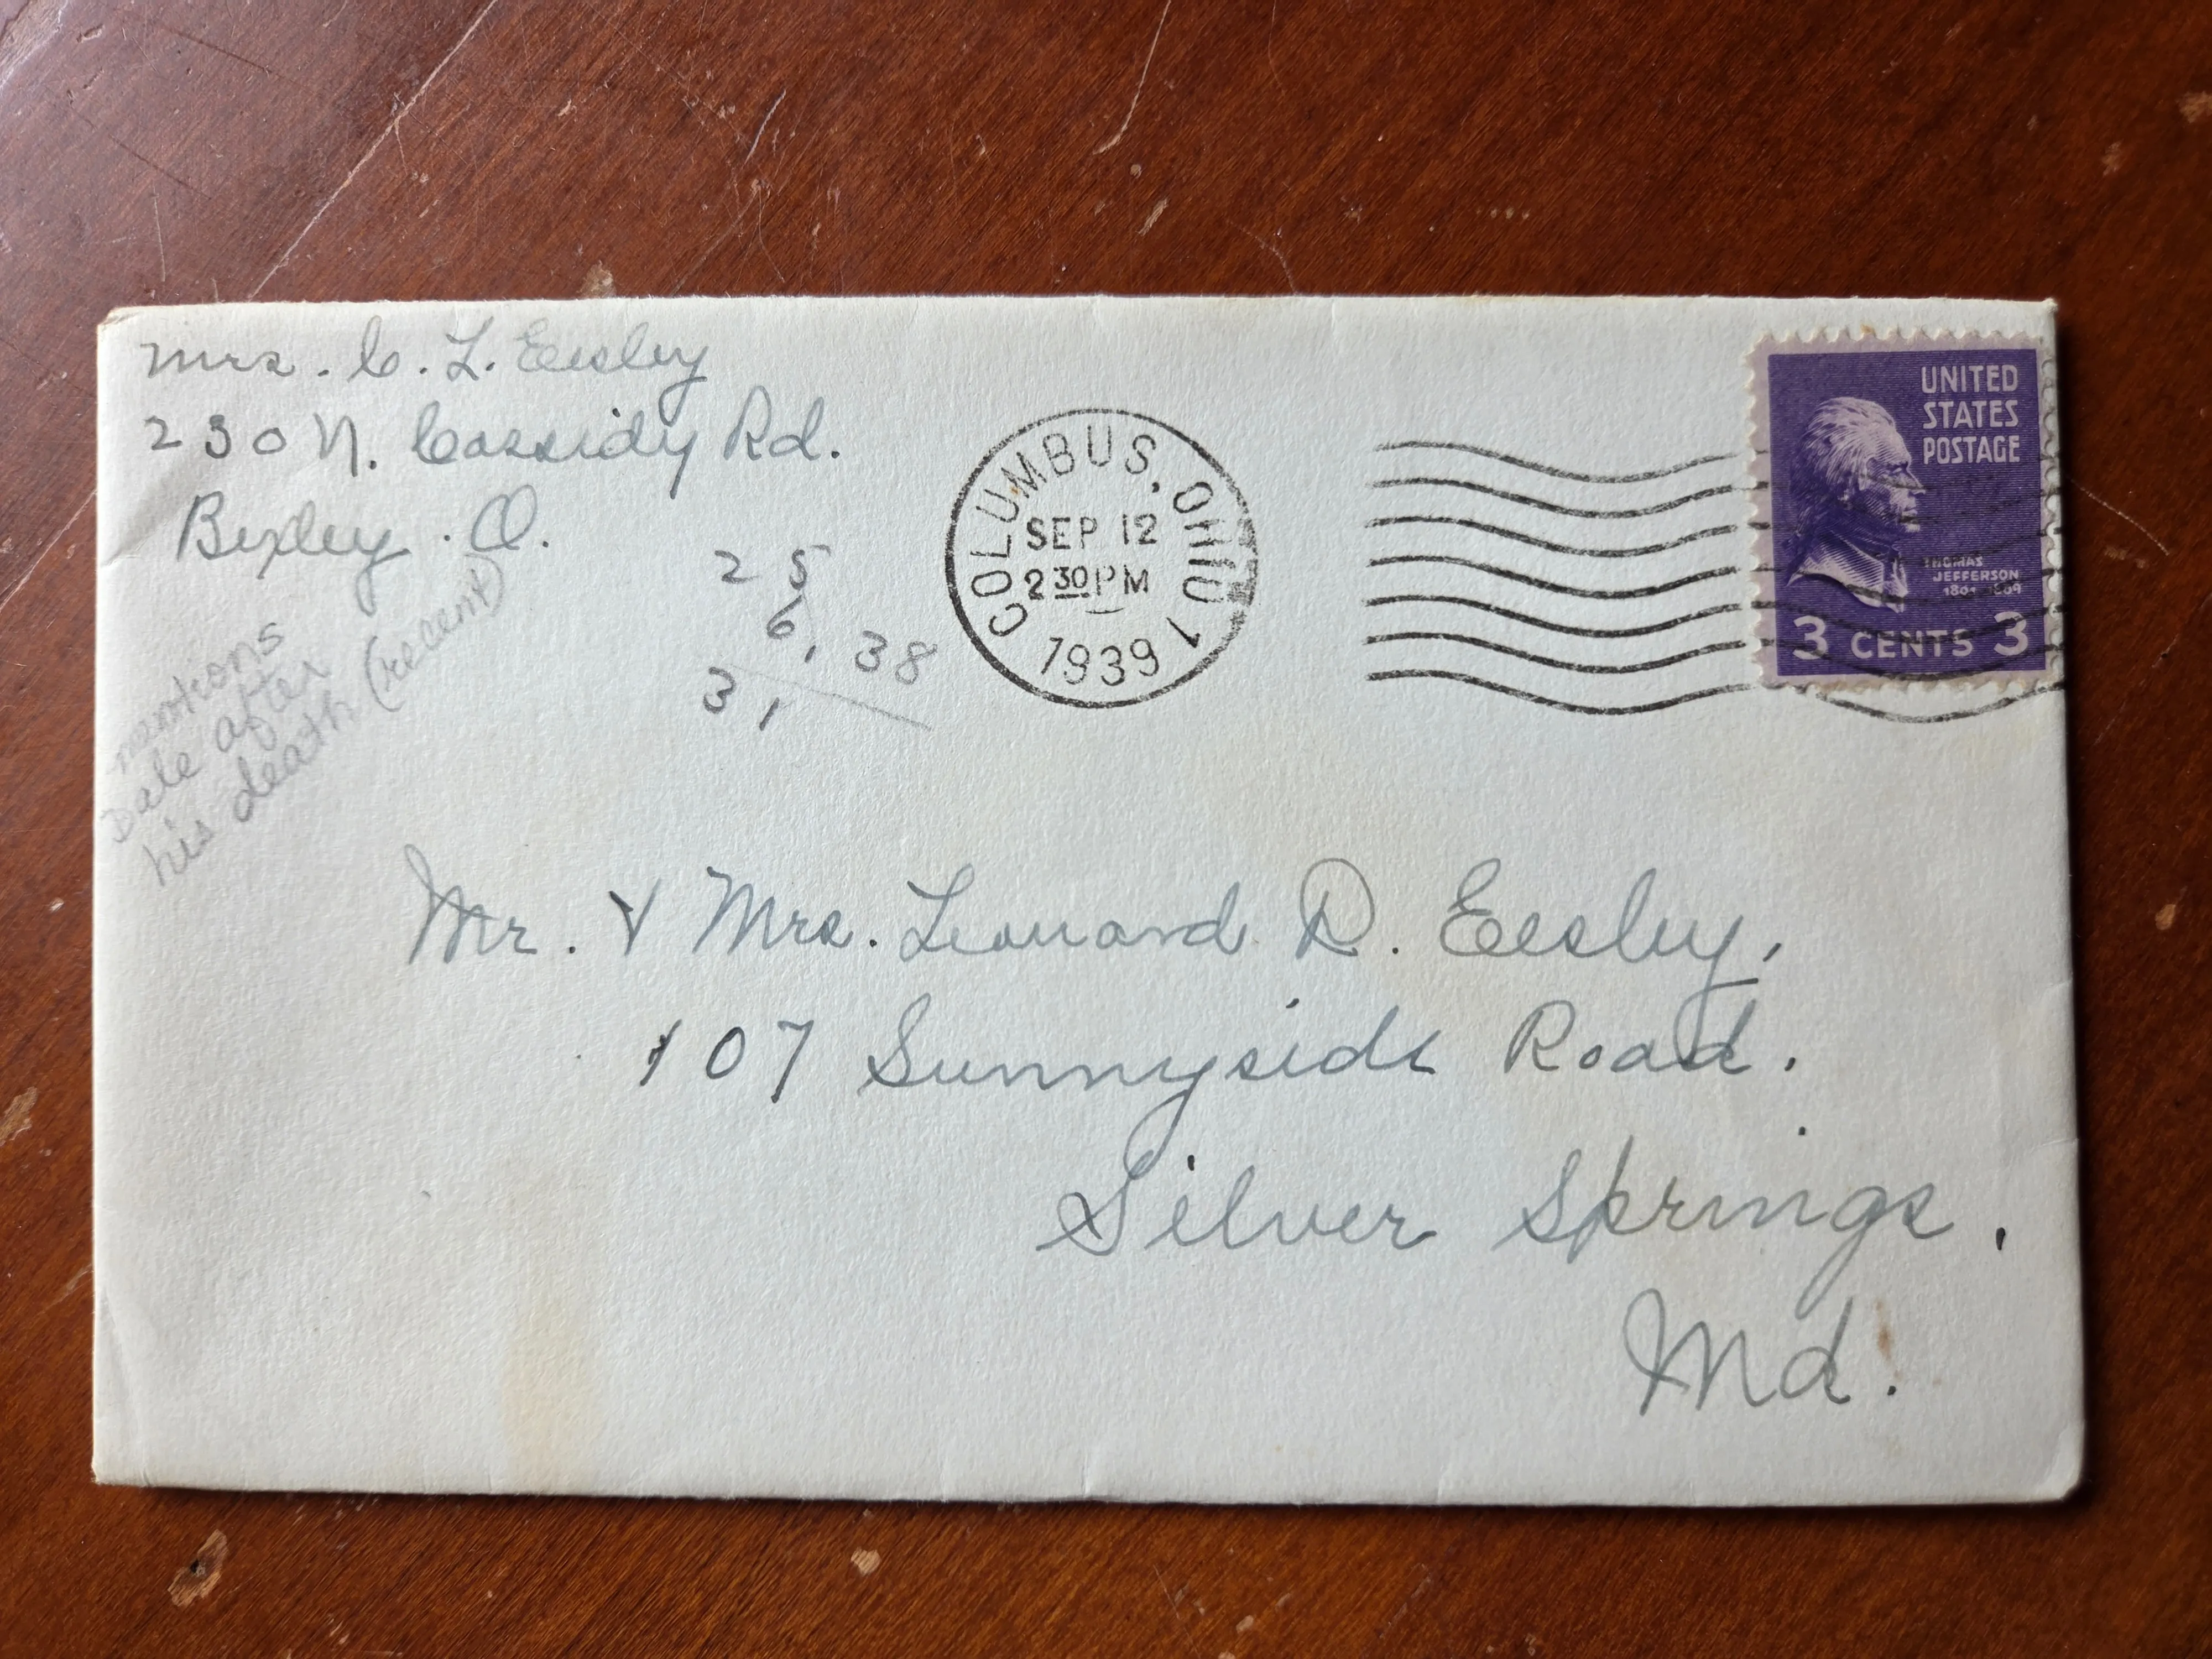 Mrs. C. L. Eesley
230 N. Cassidy Rd.
Bexley. O.
mentions
Dale after
his death (recent)
25
6, 38
31
COLUMBUS, OHIO 1
SEP 12
2 30 PM
1939
UNITED
STATES
POSTAGE
THOMAS
JEFFERSON
1801-1809
3 CENTS 3
Mr. & Mrs. Leonard D. Eesley,
107 Sunnyside Road.
Silver Springs,
Md.